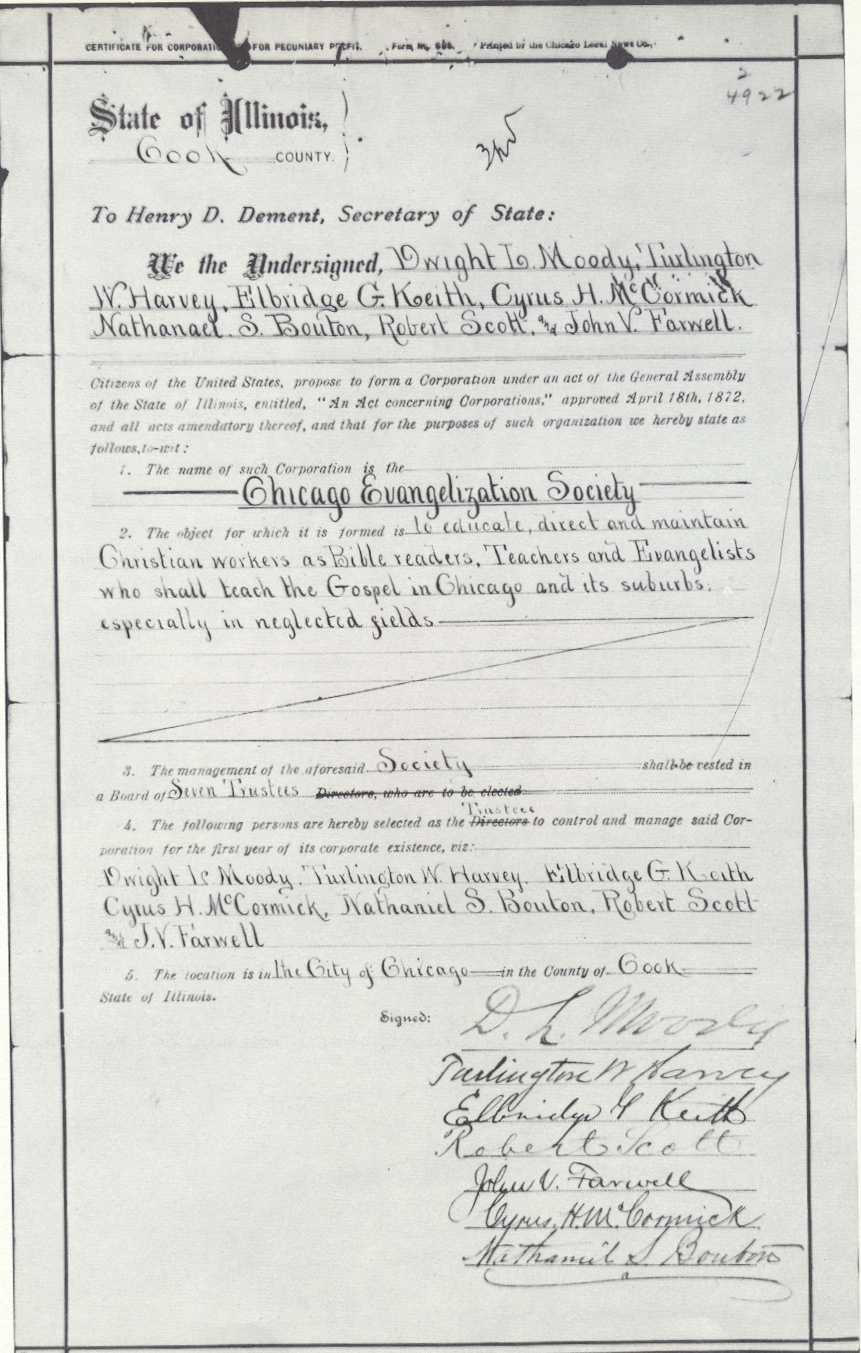 CERTIFICATE FOR CORPORATION FOR PECUNIARY PROFIT. Form No. Printed by the Chicago Legal News Co.
2
4922
State of Illinois,
Cook COUNTY.
To Henry D. Dement, Secretary of State:
We the Undersigned, Dwight L. Moody, Turlington
W. Harvey, Elbridge G. Keith, Cyrus H. McCormick
Nathanael S. Bouton, Robert Scott, and John V. Farwell.
Citizens of the United States, propose to form a Corporation under an act of the General Assembly
of the State of Illinois, entitled, "An Act concerning Corporations," approved April 18th, 1872,
and all acts amendatory thereof, and that for the purposes of such organization we hereby state as
follows, to-wit:
1. The name of such Corporation is the
Chicago Evangelization Society
2. The object for which it is formed is to educate, direct and maintain
Christian workers as Bible readers, Teachers and Evangelists
who shall teach the Gospel in Chicago and its suburbs.
especially in neglected fields
3. The management of the aforesaid Society shall be vested in
a Board of Seven Trustees Directors, who are to be elected
Trustees
4. The following persons are hereby selected as the Directors to control and manage said Cor-
poration for the first year of its corporate existence, viz:
Dwight L. Moody. Turlington W. Harvey. Elbridge G. Keith
Cyrus H. McCormick, Nathaniel S. Bouton, Robert Scott
and J. V. Farwell
5. The location is in the City of Chicago in the County of Cook
State of Illinois.
Signed:
D. L. Moody
Turlington W Harvey
Elbridge G Keith
Robert Scott
John V. Farwell
Cyrus H. McCormick
Nathaniel S. Bouton